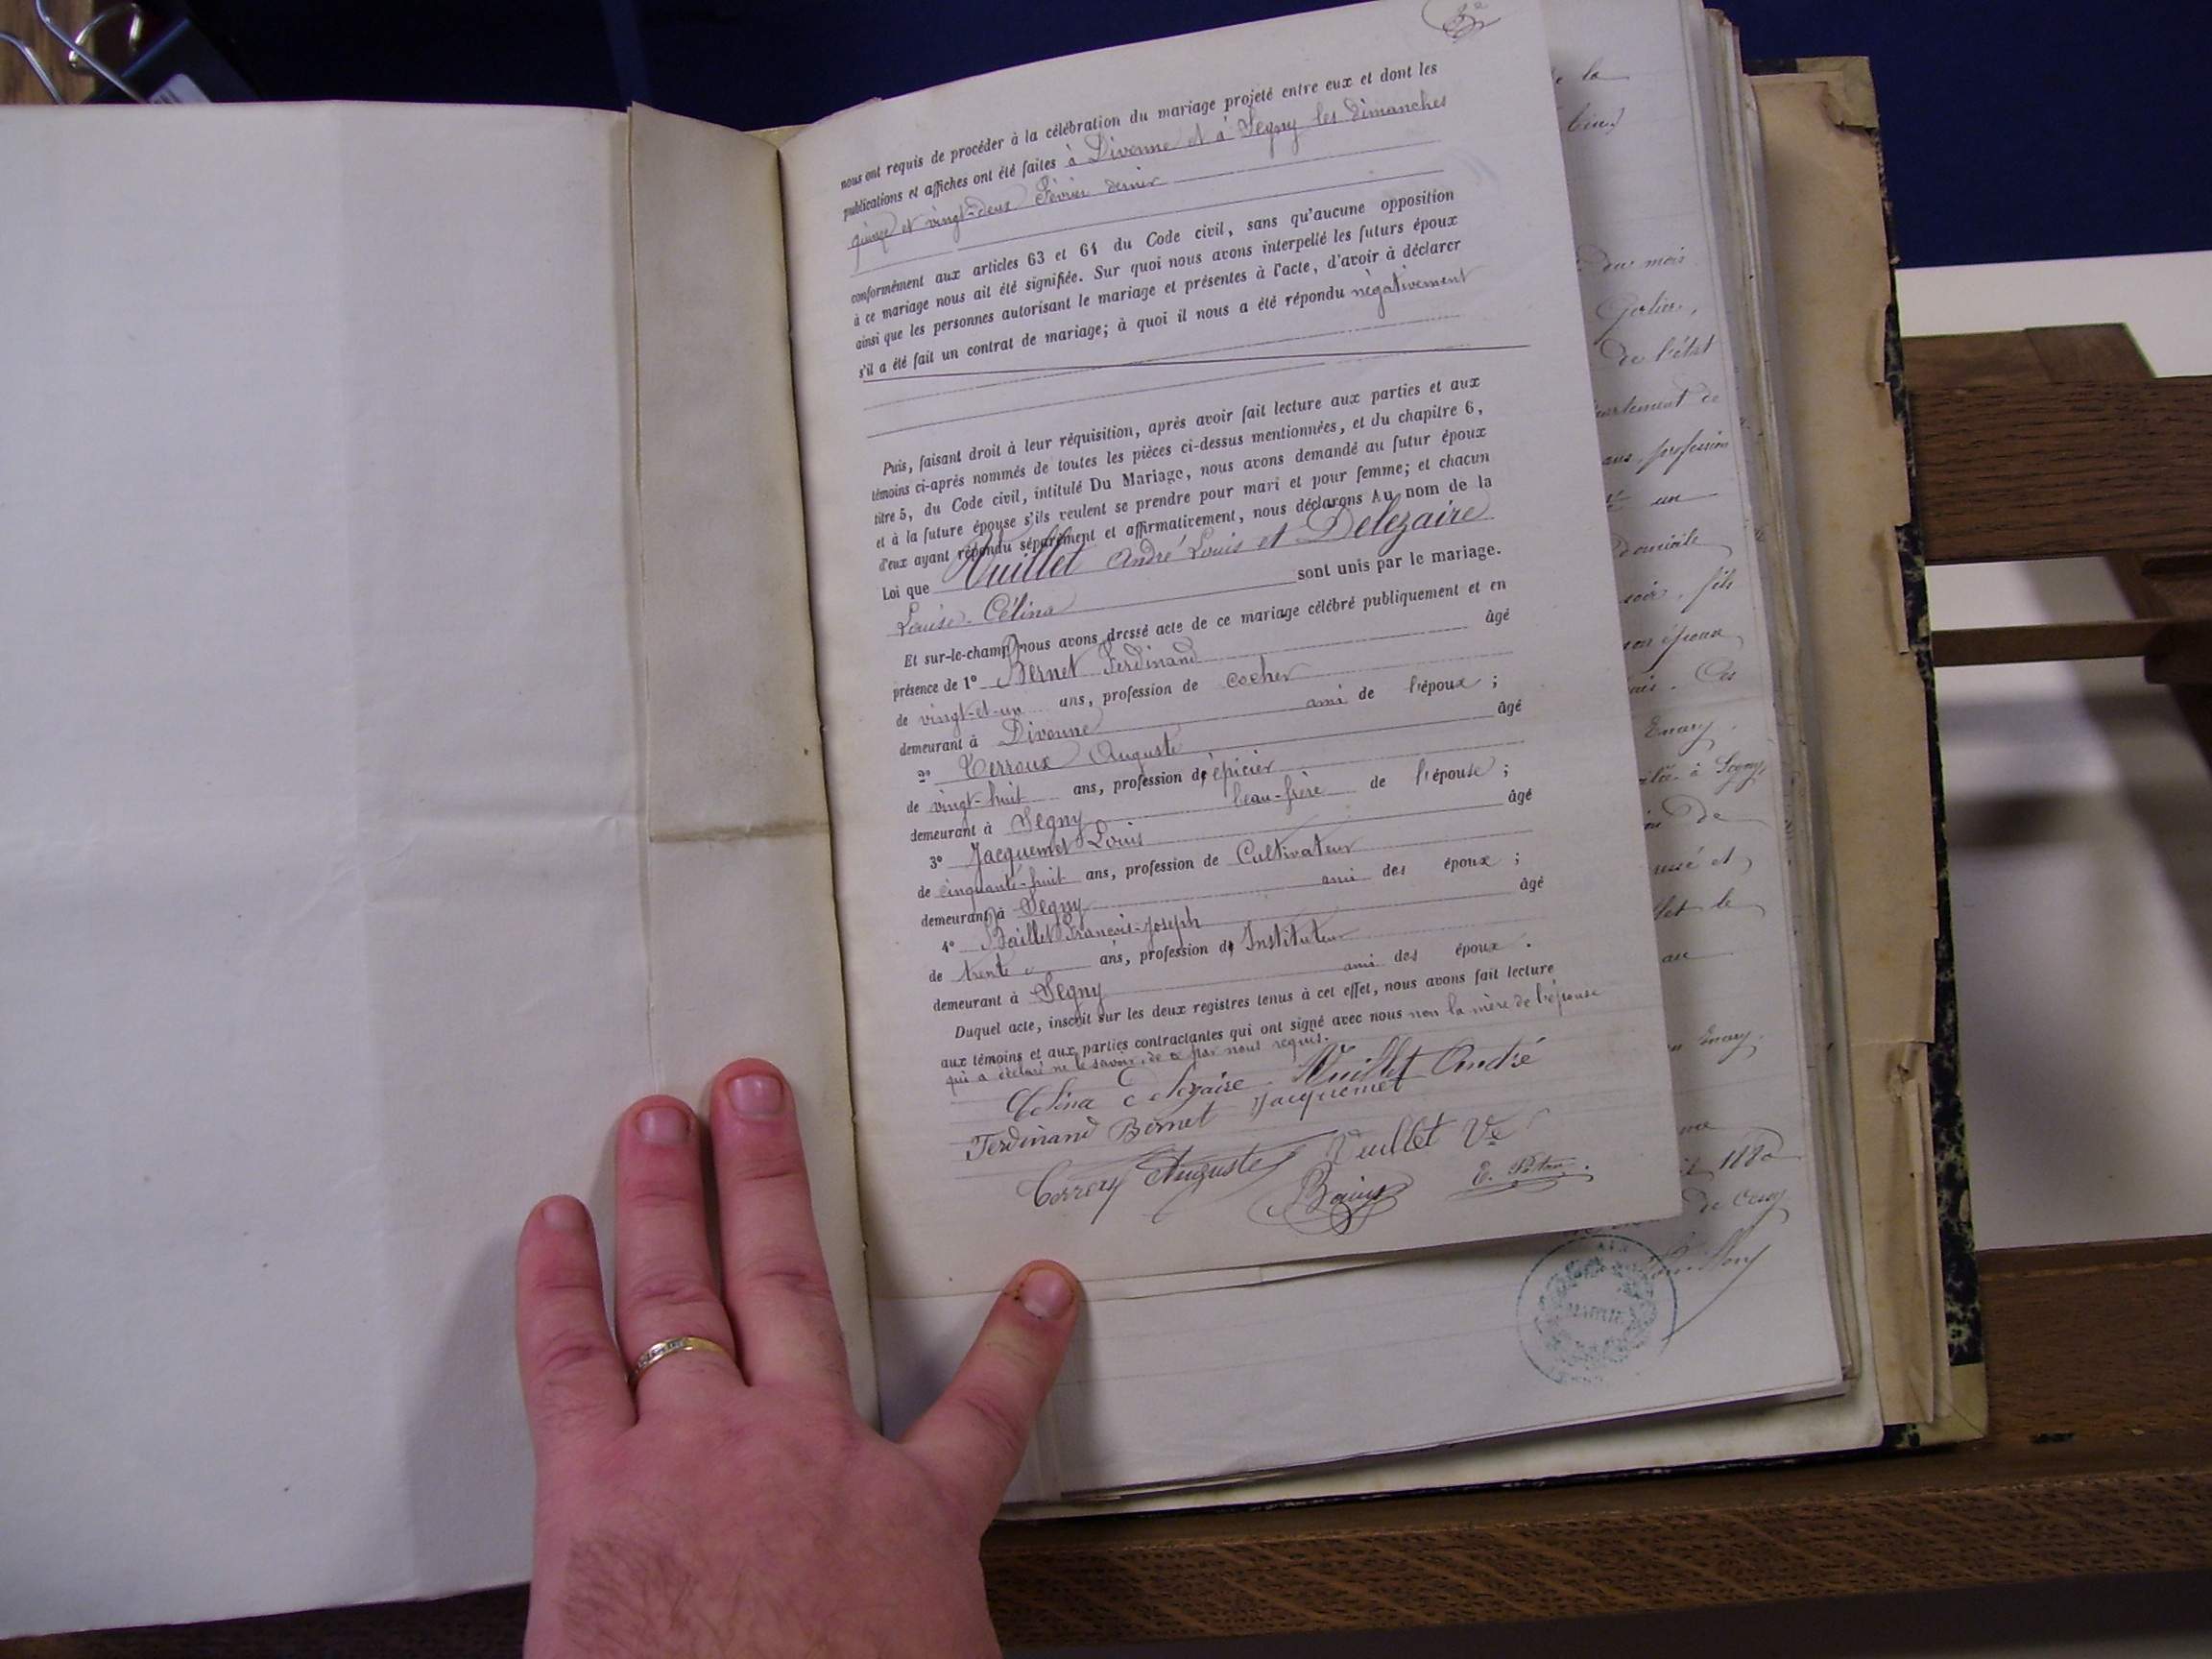 nous ont requis de procéder à la célébration du mariage projeté entre eux et dont les
publications et affiches ont été faites à Divonne et à Segny les dimanches
quinze et vingt-deux Février dernier
conformément aux articles 63 et 64 du Code civil, sans qu'aucune opposition
à ce mariage nous ait été signifiée. Sur quoi nous avons interpellé les futurs époux
ainsi que les personnes autorisant le mariage et présentes à l'acte, d'avoir à déclarer
s'il a été fait un contrat de mariage; à quoi il nous a été répondu négativement
Puis, faisant droit à leur réquisition, après avoir fait lecture aux parties et aux
témoins ci-après nommés de toutes les pièces ci-dessus mentionnées, et du chapitre 6,
titre 5, du Code civil, intitulé Du Mariage, nous avons demandé au futur époux
et à la future épouse s'ils veulent se prendre pour mari et pour femme; et chacun
d'eux ayant répondu séparément et affirmativement, nous déclarons Au nom de la
Loi que Vuillet André Louis et Delezaire
Louise-Célina sont unis par le mariage.
Et sur-le-champ nous avons dressé acte de ce mariage célébré publiquement et en
présence de 1° Bernet Ferdinand âgé
de vingt-et-un ans, profession de cocher
demeurant à Divonne ami de l'époux;
2° Terroux Auguste âgé
de vingt-huit ans, profession d'épicier
demeurant à Segny beau-frère de l'épouse;
3° Jacquemet Louis âgé
de cinquante-huit ans, profession de Cultivateur
demeurant à Segny ami des époux;
4° François-Joseph âgé
de trente ans, profession d' Instituteur
demeurant à Segny ami des époux.
Duquel acte, inscrit sur les deux registres tenus à cet effet, nous avons fait lecture
aux témoins et aux parties contractantes qui ont signé avec nous non la mère de l'épouse
qui a déclaré ne le savoir, de ce par nous requis.
Célina Delezaire Vuillet André
Ferdinand Bernet Jacquemet
Terroux Auguste Vuillet Vᵉ
de la
du mois
de l'état
profession
un
domicile
fils
époux
Ces
à Segny
de
et
le
au
1880
MAIRIE